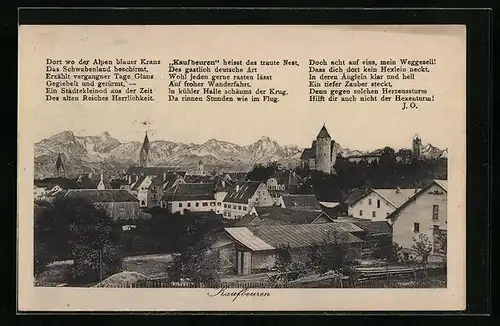 Dort wo der Alpen blauer Kranz
Das Schwabenland beschirmt,
Erzählt vergangner Tage Glanz
Gegiebelt und getürmt, —
Ein Städtekleinod aus der Zeit
Des alten Reiches Herrlichkeit.
„Kaufbeuren" heisst das traute Nest,
Des gastlich deutsche Art
Wohl jeden gerne rasten lässt
Auf froher Wanderfahrt.
In kühler Halle schäumt der Krug,
Da rinnen Stunden wie im Flug.
Doch acht auf eins, mein Weggesell!
Dass dich dort kein Hexlein neckt,
In deren Äuglein klar und hell
Ein tiefer Zauber steckt,
Denn gegen solchen Herzenssturm
Hilft dir auch nicht der Hexenturm!
J. O.
Kaufbeuren